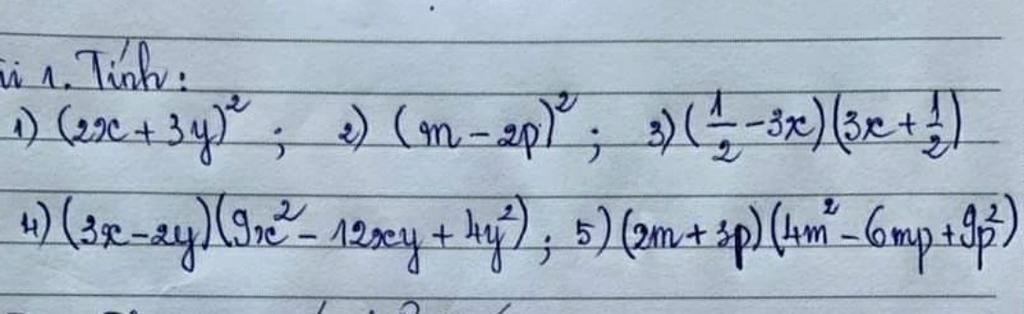 ài 1. Tính:
1) (2x + 3y)² ; 2) (m - 2p)² ; 3) (1/2 - 3x)(3x + 1/2)
4) (3x - 2y)(9x² - 12xy + 4y²) ; 5) (2m + 3p)(4m² - 6mp + 9p²)